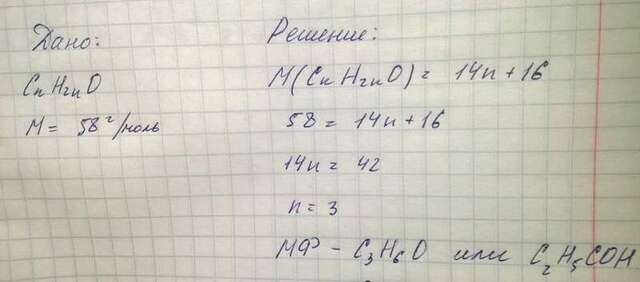 Дано:
CnH2nO
M = 58 г/моль
Решение:
M(CnH2nO) = 14n + 16
58 = 14n + 16
14n = 42
n = 3
МФ - C3H6O или C2H5COH